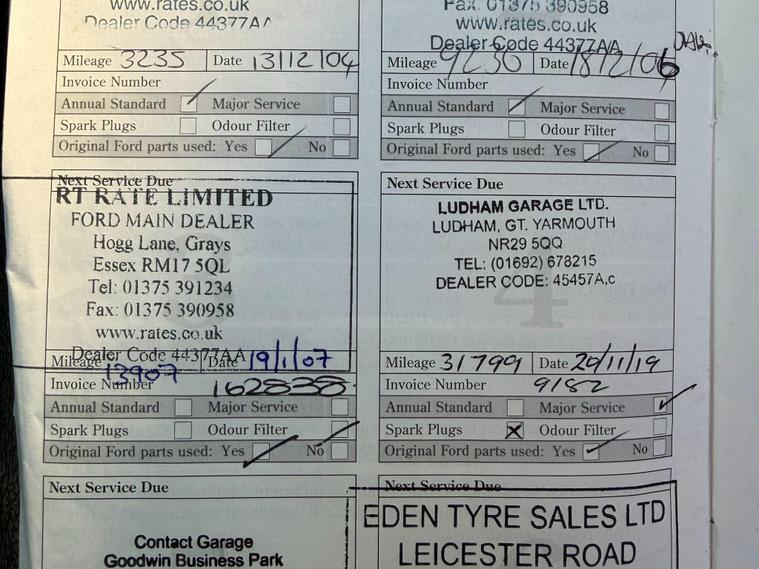 www.rates.co.uk
Dealer Code 44377AA
Mileage 3235 Date 13/12/04
Invoice Number
Annual Standard Major Service
Spark Plugs Odour Filter
Original Ford parts used: Yes No
Fax: 01375 390958
www.rates.co.uk
Dealer Code 44377AA
Mileage 9230 Date 18/12/06
Invoice Number
Annual Standard Major Service
Spark Plugs Odour Filter
Original Ford parts used: Yes No
Next Service Due
RT RATE LIMITED
FORD MAIN DEALER
Hogg Lane, Grays
Essex RM17 5QL
Tel: 01375 391234
Fax: 01375 390958
www.rates.co.uk
Dealer Code 44377AA
Mileage 13907 Date 19/1/07
Invoice Number 162838
Annual Standard Major Service
Spark Plugs Odour Filter
Original Ford parts used: Yes No
Next Service Due
LUDHAM GARAGE LTD.
LUDHAM, GT. YARMOUTH
NR29 5QQ
TEL: (01692) 678215
DEALER CODE: 45457A,c
4
Mileage 31799 Date 20/11/19
Invoice Number 9182
Annual Standard Major Service
Spark Plugs Odour Filter
Original Ford parts used: Yes No
Next Service Due
Contact Garage
Goodwin Business Park
Next Service Due
EDEN TYRE SALES LTD
LEICESTER ROAD